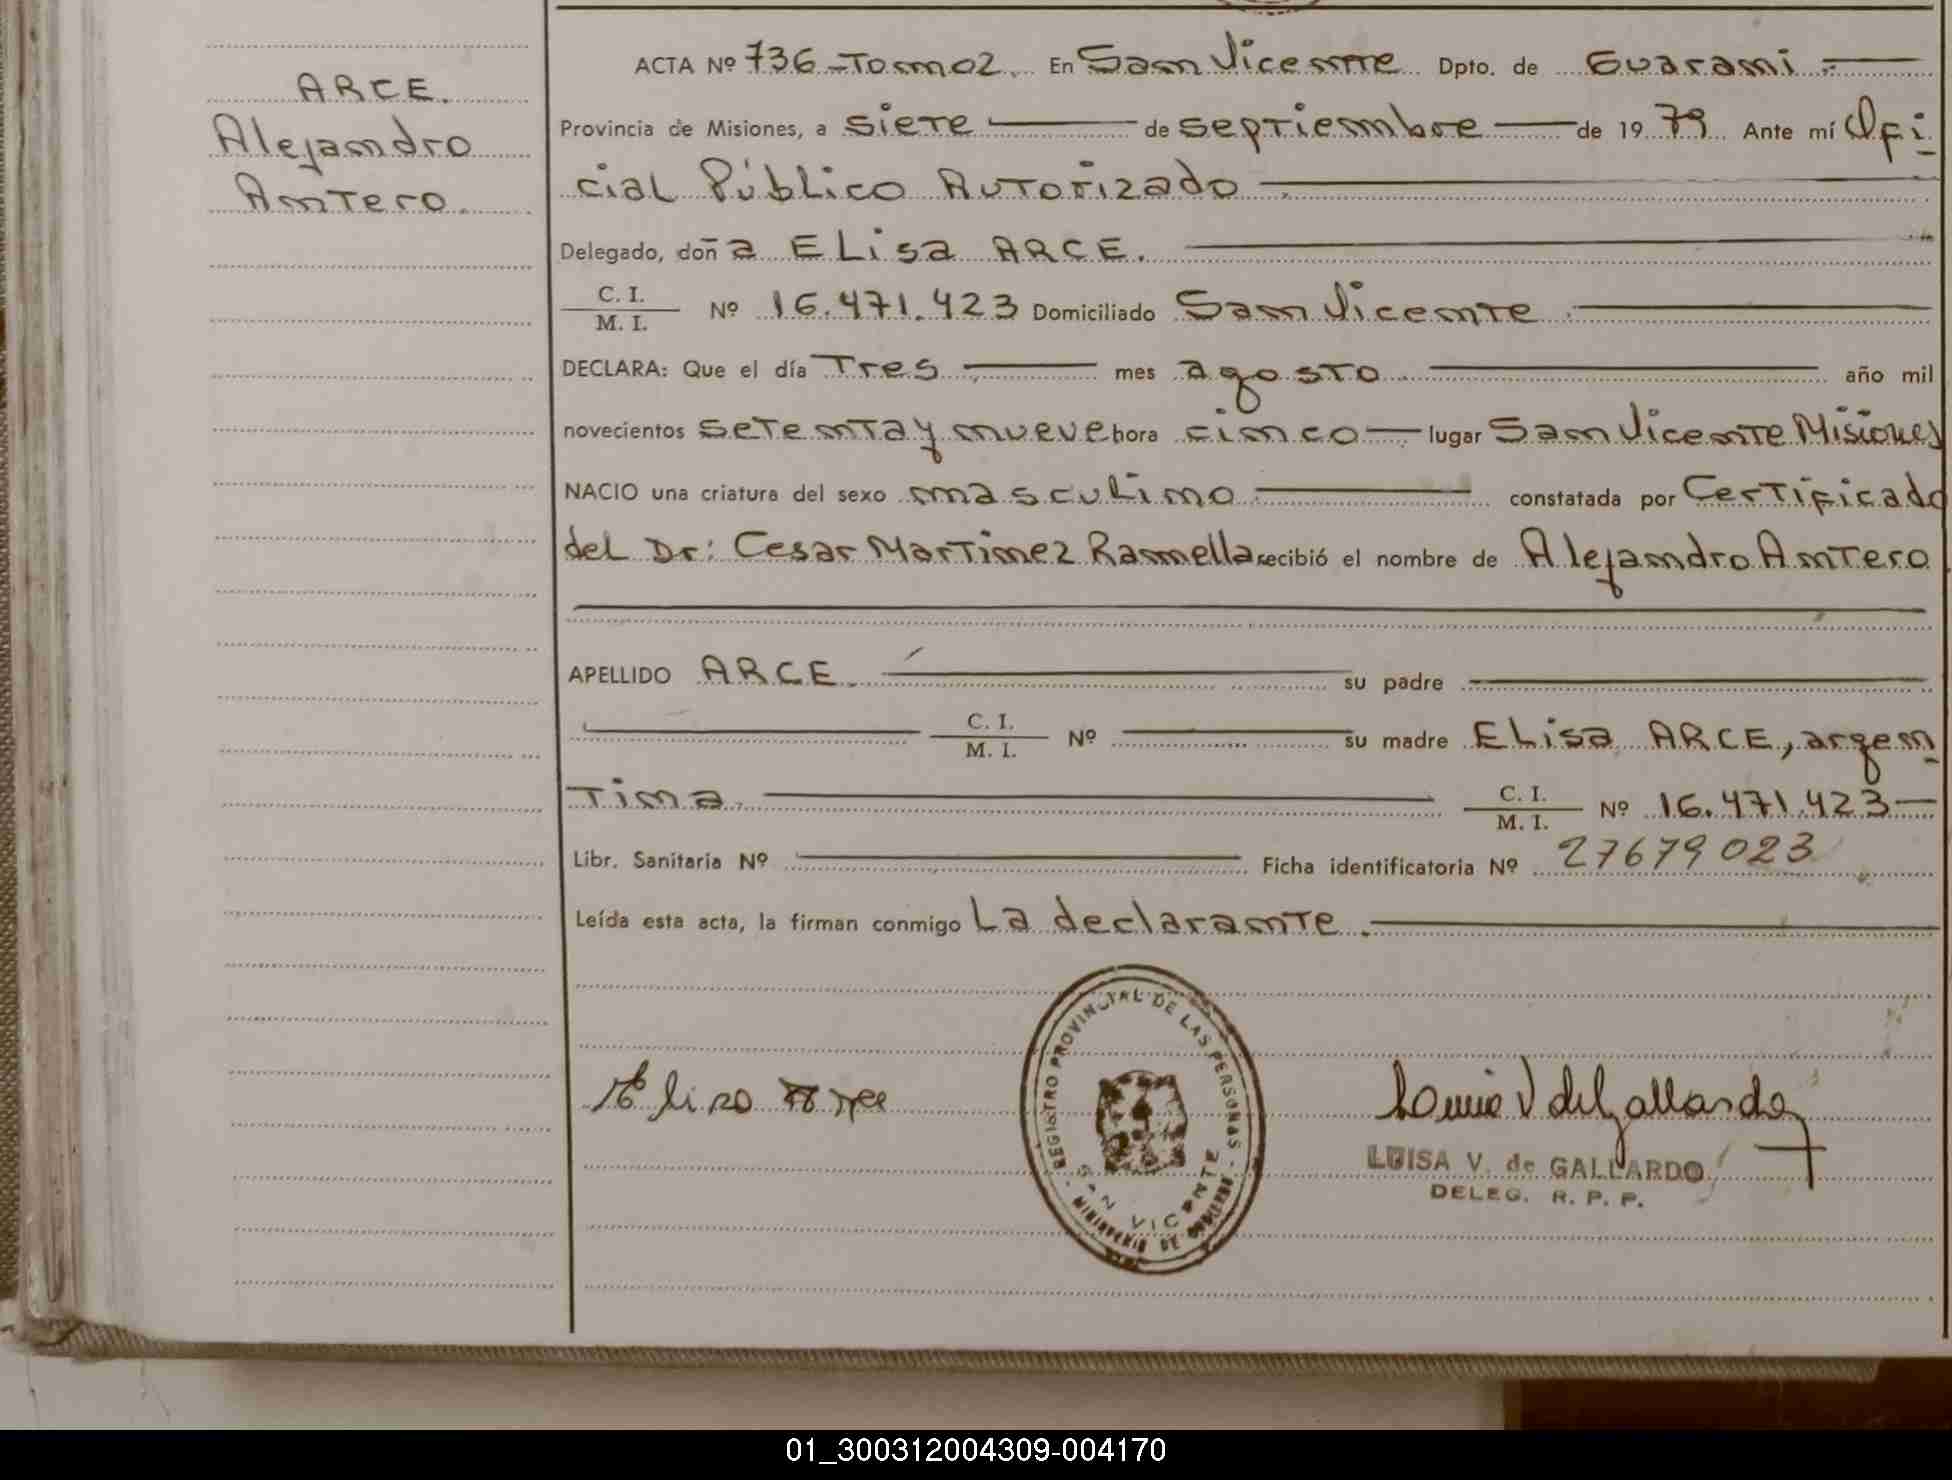 ARCE.
Alejandro
Antero.
ACTA Nº 736 - Tomo 2. En San Vicente Dpto. de Guarani.-
Provincia de Misiones, a siete de septiembre de 1979 Ante mí Ofi-
cial Público Autorizado
Delegado, doña Elisa ARCE.
C. I.
M. I. Nº 16.471.423 Domiciliado San Vicente
DECLARA: Que el día Tres mes agosto año mil
novecientos setenta y nueve hora cinco lugar San Vicente Misiones
NACIO una criatura del sexo masculino constatada por Certificado
del Dr: Cesar Martinez Ramella recibió el nombre de Alejandro Antero
APELLIDO ARCE. su padre
C. I.
M. I. Nº su madre Elisa ARCE, argen-
tina. C. I.
M. I. Nº 16.471.423
Libr. Sanitaria Nº Ficha identificatoria Nº 27679023
Leída esta acta, la firman conmigo La declarante.
REGISTRO PROVINCIAL DE LAS PERSONAS
SAN VICENTE
MINISTERIO DE GOBIERNO
Elisa Arce
Luisa V de Gallardo
LUISA V. de GALLARDO
DELEG. R. P. P.
01_300312004309-004170